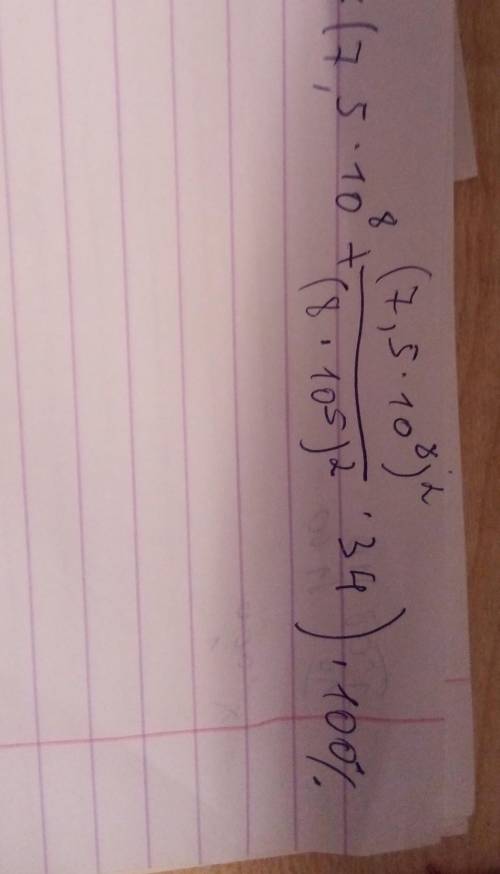 : (7,5 · 10⁸ + (7,5 · 10⁸)² / (8 · 10⁵)² · 34) · 100%